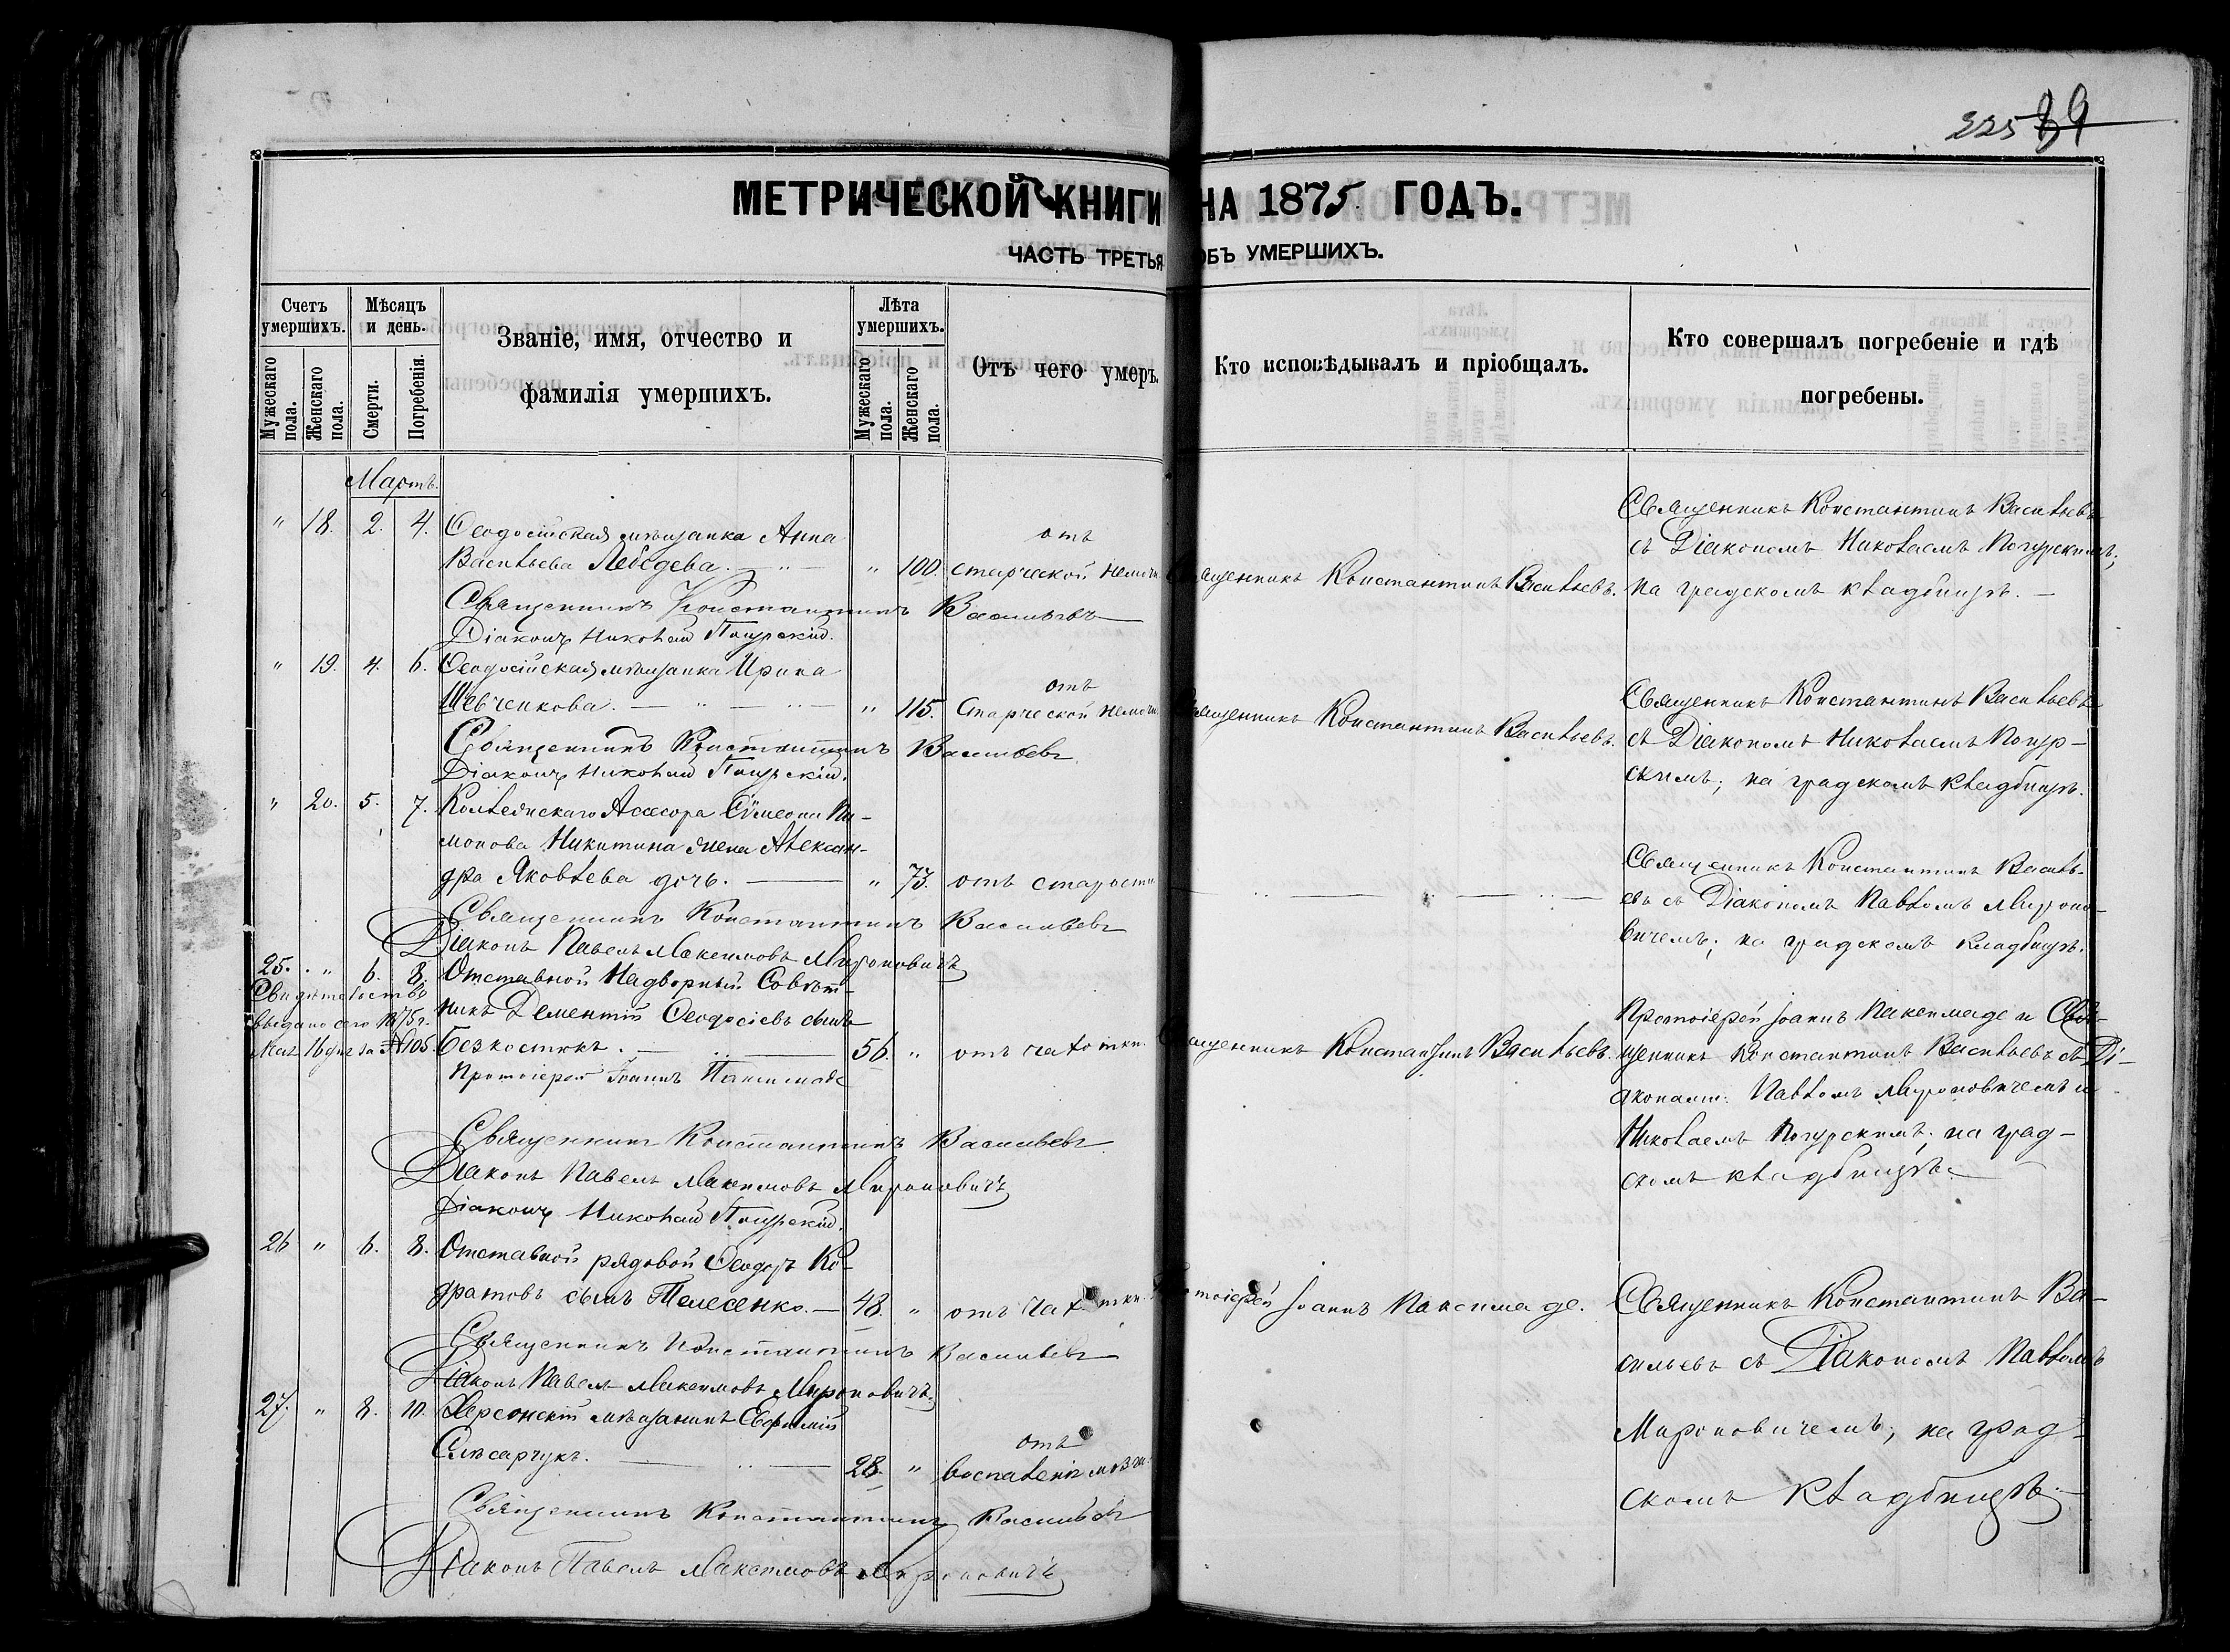 225 89
МЕТРИЧЕСКОЙ КНИГИ НА 1875 ГОДЪ.
ЧАСТЬ ТРЕТЬЯ ОБЪ УМЕРШИХЪ.
Счетъ умершихъ.
Мужескаго пола.
Женскаго пола.
Мѣсяцъ и день.
Смерти.
Погребенія.
Званіе, имя, отчество и
фамилія умершихъ.
Лѣта умершихъ.
Мужескаго пола.
Женскаго пола.
Отъ чего умеръ.
Кто исповѣдывалъ и пріобщалъ.
Кто совершалъ погребеніе и гдѣ
погребены.
Мартъ.
" 18. 2. 4. Ѳеодосійская мѣщанка Анна
Васильева Лебедева. " 100. отъ
старческой немощи
Священникъ Константинъ Васильевъ.
Священникъ Константинъ Васильевъ
съ Діакономъ Николаемъ Погурскимъ;
на градскомъ кладбищѣ.
Священникъ Константинъ Васильевъ
Діаконъ Николай Погурскій.
" 19. 4. 6. Ѳеодосійская мѣщанка Ирина
Шевченкова. " 115. отъ
старческой немощи
Священникъ Константинъ Васильевъ.
Священникъ Константинъ Васильевъ
съ Діакономъ Николаемъ Погур-
скимъ; на градскомъ кладбищѣ.
Священникъ Константинъ Васильевъ
Діаконъ Николай Погурскій.
" 20. 5. 7. Коллежскаго Асесора Сѵмеона Пи-
монова Никитина жена Алексан-
дра Яковлева дочь. " 73. отъ старости
Священникъ Константинъ Василь-
евъ съ Діакономъ Павломъ Мироно-
вичемъ; на градскомъ кладбищѣ.
Священникъ Константинъ Васильевъ
Діаконъ Павелъ Максимовъ Мироновичъ
25. " 6. 8. Отставной Надворный Совѣт-
никъ Дементій Ѳеодосіевъ сынъ
Безкостикъ. 56. " отъ чахотки.
Свидѣтельство
выдано сего 1875 г.
Мая 16 дня за № 105.
Священникъ Константинъ Васильевъ.
Протоіерей Іоаннъ Паксимаде и Свя-
щенникъ Константинъ Васильевъ съ Ді-
аконами: Павломъ Мироновичемъ и
Николаемъ Погурскимъ; на град-
скомъ кладбищѣ.
Протоіерей Іоаннъ Паксимаде
Священникъ Константинъ Васильевъ
Діаконъ Павелъ Максимовъ Мироновичъ
Діаконъ Николай Погурскій.
26 " 6. 8. Отставной рядовой Ѳеодоръ Ко-
дратовъ сынъ Телесенко. 48. " отъ чахотки.
Протоіерей Іоаннъ Паксимаде.
Священникъ Константинъ Ва-
сильевъ съ Діакономъ Павломъ
Мироновичемъ; на град-
скомъ кладбищѣ.
Священникъ Константинъ Васильевъ
Діаконъ Павелъ Максимовъ Мироновичъ.
27. " 8. 10. Херсонскій мѣщанинъ Евфимій
Слѣсарчукъ. 28. " отъ
воспаленія мозга.
Священникъ Константинъ Васильевъ
Діаконъ Павелъ Максимовъ Мироновичъ